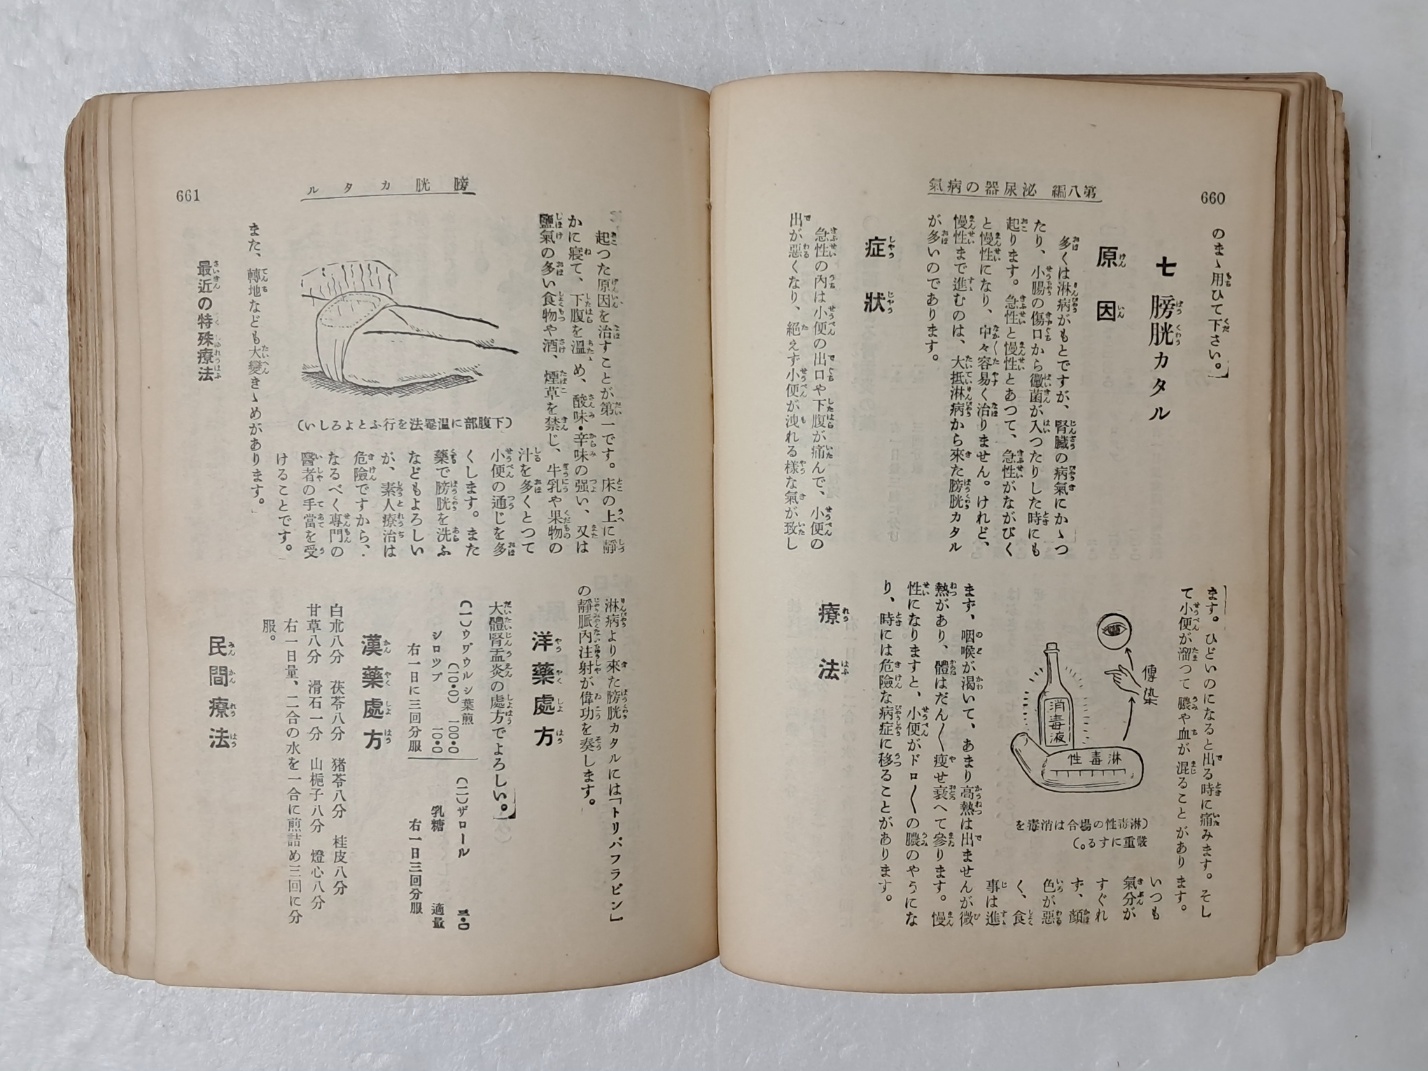 660
第八編 泌尿器の病氣
のまゝ用ひて下さい。
七 膀胱カタル
原因
多くは淋病がもとですが、腎臓の病氣にかゝつ
たり、小腸の傷口から黴菌が入つたりした時にも
起ります。急性と慢性とあつて、急性がながびく
と慢性になり、中々容易く治りません。けれど、
慢性まで進むのは、大抵淋病から來た膀胱カタル
が多いのであります。
症狀
急性の內は小便の出口や下腹が痛んで、小便の
出が惡くなり、絕えず小便が洩れる樣な氣が致し
ます。ひどいのになると出る時に痛みます。そし
て小便が溜つて膿や血が混ることがあります。
いつも
氣分が
すぐれ
ず、顏
色が惡
く、食
事は進
まず、咽喉が渴いて、あまり高熱は出ませんが微
熱があり、體はだん〱瘦せ衰へて參ります。慢
性になりますと、小便がドロ〱の膿のやうにな
り、時には危險な病症に移ることがあります。
傳染
消毒液
淋毒性
(淋毒性の場合は消毒を
嚴重にする。)
療法
661
膀胱カタル
起つた原因を治すことが第一です。床の上に靜
かに寢て、下腹を溫め、酸味・辛味の强い、又は
鹽氣の多い食物や酒、煙草を禁じ、牛乳や果物の
汁を多くとつて
小便の通じを多
くします。また
藥で膀胱を洗ふ
などもよろしい
が、素人療治は
危險ですから、
なるべく專門の
醫者の手當を受
けることです。
(下腹部に溫罨法を行ふとよろしい)
また、轉地なども大變きゝめがあります。
最近の特殊療法
淋病より來た膀胱カタルには「トリパフラビン」
の靜脈內注射が偉功を奏します。
洋藥處方
大體腎盂炎の處方でよろしい。
(一)ウヴウルシ葉煎
(一〇・〇) 一〇〇・〇
シロップ 一〇・〇
右一日に三回分服
(二)ザロール 三・〇
乳糖 適量
右一日三回分服
漢藥處方
白朮八分 茯苓八分 猪苓八分 桂皮八分
甘草八分 滑石一分 山梔子八分 燈心八分
右一日量、二合の水を一合に煎詰め三回に分
服。
民間療法